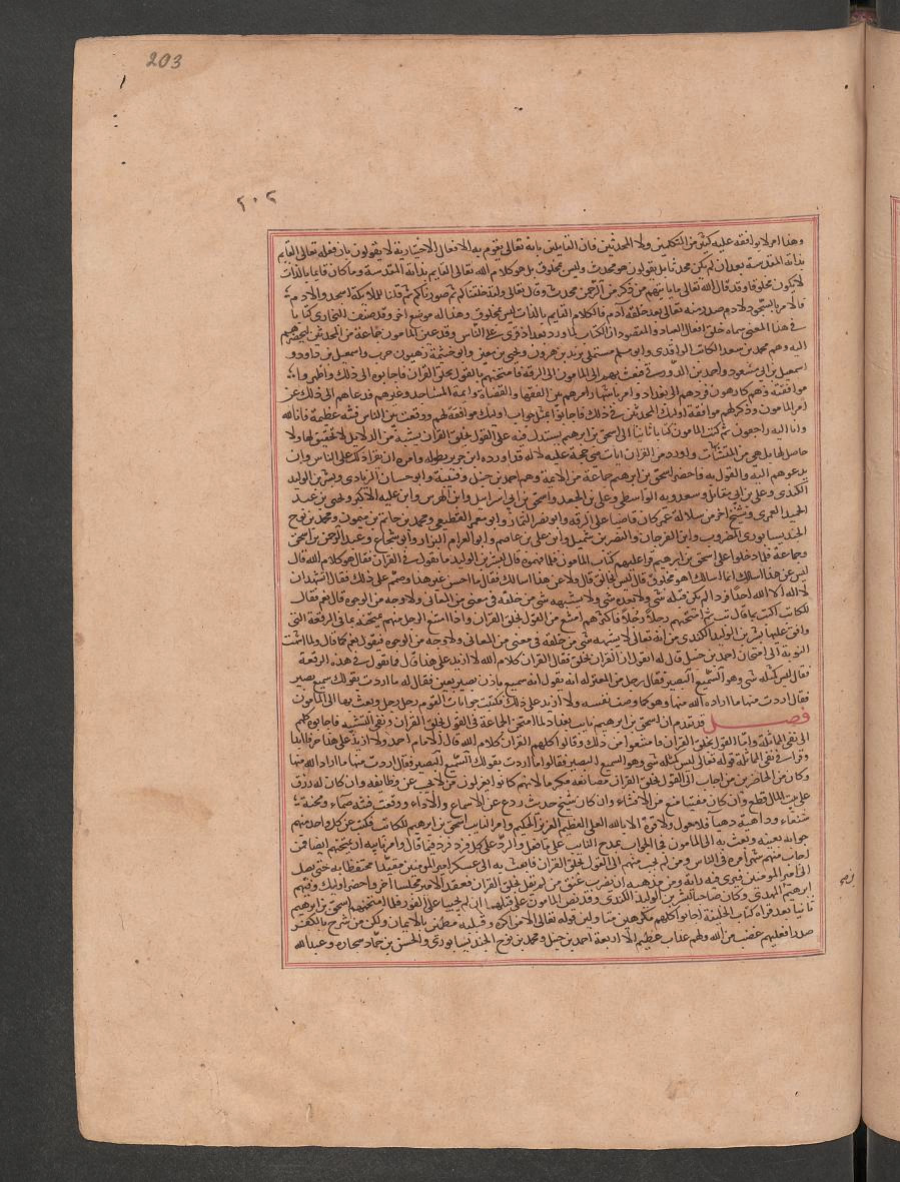 203
٢٠٢
وهذا امر لا يوافقه عليه كثير من المتكلمين ولا المحدثين فان القايلين بانه تعالى يقوم به الافعال الاختيارية لا يقولون بان فعله تعالى القايم
بذاته المقدسة بعد ان لم يكن محدثا بل يقولون هو محدث وليس بمخلوق بل هو كلام الله تعالى القايم بذاته المقدسة وما كان قايما بالذات
لا يكون مخلوقا وقد قال الله تعالى ما ياتيهم من ذكر من الرحمن محدث وقال تعالى ولقد خلقناكم ثم صورناكم ثم قلنا للملايكة اسجدوا لادم
فالامر بالسجود لادم صدر منه تعالى بعد خلقه آدم فالكلام القايم بالذات ليس بمخلوق وهذا له موضع اخر وقد صنف البخاري كتابا
في هذا المعنى سماه خلق افعال العباد والمقصود ان الكتاب لما ورد بغداد قرى على الناس وقد عين المامون جماعة من المحدثين ليحضرهم
اليه وهم محمد بن سعد الكاتب الواقدى وابو مسلم مستملى يزيد بن هرون ويحيى بن معين وابو خيثمة زهير بن حرب واسمعيل بن داود و
اسمعيل بن ابى مسعود واحمد بن الدورقى فبعث بهم الى المامون الى الرقة فامتحنهم بالقول بخلق القران فاجابوه الى ذلك واظهروا
موافقته وهم كارهون فردهم الى بغداد وامر باشهار امرهم بين الفقها والقضاة وايمة المساجد وغيرهم فدعاهم الى ذلك عن
امر المامون وذكر لهم موافقة اوليك المحدثين في ذلك فاجابوا بمثل جواب اوليك موافقة لهم ووقعت بين الناس فتنة عظيمة فانا لله
وانا اليه راجعون ثم كتب المامون كتابا ثانيا الى اسحق بن ابرهيم يستدل فيه على القول بخلق القران بشبه من الدلايل لا تحقيق لها ولا
حاصل لها بل هي من المتشابهات واورد من القران ايات هي حجة عليه لا له قد اورده ابن جرير بطوله وامره ان يقرا ذلك على الناس وان
يدعوهم اليه والقول به فاحضر اسحق بن ابرهيم جماعة من الايمة وهم احمد بن حنبل وقتيبة وابو حسان الزيادى وبشر بن الوليد
الكندى وعلى بن ابى مقاتل وسعدويه الواسطى وعلى بن الجعد واسحق بن ابى اسرايل وابن الهرس وابن علية الاكبر ويحيى بن عبد
الحميد العمرى وشيخ اخر من سلالة عمر كان قاضيا على الرقة وابو نصر التمار وابو معمر القطيعى ومحمد بن حاتم بن ميمون ومحمد بن نوح
الجنديسابورى المضروب وابن الفرخان والنضر بن شميل وابن على بن عاصم وابو العوام البزار وابو شجاع وعبد الرحمن بن اسحق
وجماعة فلما دخلوا على اسحق بن ابرهيم قرا عليهم كتاب المامون فلما فهموه قال لبشر بن الوليد ما تقول في القران فقال هو كلام الله قال
ليس عن هذا اسالك انما اسالك اهو مخلوق قال ليس بخالق قال ولا عن هذا اسالك فقال ما احسن غير هذا وصمم على ذلك فقال اتشهد ان
لا اله الا الله احدا فردا لم يكن قبله شى ولا بعده شى ولا يشبهه شى من خلقه في معنى من المعانى ولا وجه من الوجوه قال نعم فقال
للكاتب اكتب بما قال ثم امتحنهم رجلا رجلا فاكثرهم امتنع من القول بخلق القران واذا امتنع الرجل منهم يمتحنه بما في الرقعة التى
وافق عليها بشر بن الوليد الكندى من انه تعالى لا يشبهه شى من خلقه في معنى من المعانى ولا وجه من الوجوه فيقول نعم كما قال ولما انتهت
النوبة الى امتحان احمد بن حنبل قال له اتقول ان القران مخلوق فقال القران كلام الله لا ازيد على هذا قال ما تقول في هذه الرقعة
فقال ليس كمثله شى وهو السميع البصير فقال رجل من المعتزله انه يقول انه سميع باذن بصير بعين فقال له ما اردت بقولك سميع بصير
فقال اردت منها ما اراده الله منها وهو كما وصف نفسه ولا ازيد على ذلك فكتبت جوابات القوم رجل رجل وبعث بها الى المامون
فصــل قد تقدم ان اسحق بن ابرهيم نايب بغداد لما امتحن الجماعة في القول بخلق القران ونفى التشبيه فاجابوه كلهم
الى نفى المماثلة واما القول بخلق القران فامتنعوا من ذلك وقالوا كلهم القران كلام الله قال الامام احمد ولا ازيد على هذا حرفا ابدا
وقرا في نفى المماثلة قوله تعالى ليس كمثله شى وهو السميع البصير فقالوا ما اردت بقولك السميع البصير فقال اردت منها ما اراد الله منها
وكان من الحاضرين من اجاب الى القول بخلق القران مصانعة مكرها لانهم كانوا يعزلون من لا يجيب عن وظايفه وان كان له رزق
على بيت المال قطع وان كان مفتيا منع من الافتاء وان كان شيخ حديث ردع عن الاسماع والاداء ووقعت فتنة صماء ومحنة
شنعاء وداهية دهيا فلا حول ولا قوة الا بالله العلى العظيم العزيز الحكيم وامر النايب اسحق بن ابرهيم للكاتب فكتب عن كل واحد منهم
جوابه بعينه وبعث به الى المامون فجا الجواب بمدح النايب على ما فعل والرد على كل فرد فرد فيما قال وامر نايبه ان يمتحنهم ايضا فمن
اجاب منهم شهر امره في الناس ومن لم يجب منهم الى القول بخلق القران فابعث به الى عسكر امير المومنين مقيدا محتفظا به حتى يصل
الى امير المومنين فيرى فيه رايه ومن مذهبه ان يضرب عنق من لم يقل بخلق القران فعقد الامير مجلسا اخر واحضر اوليك وفيهم
ابرهيم المهدى وكان صاحبا لبشر بن الوليد الكندى وقد نص المامون على قتلهما ان لم يجيبا على الفور فلما امتحنهم اسحق بن ابرهيم
ثانيا بعد قراة كتاب الخليفة اجابوا كلهم مكرهين متاولين قوله تعالى الا من اكره وقلبه مطمين بالايمان ولكن من شرح بالكفر
صدرا فعليهم غضب من الله ولهم عذاب عظيم الا اربعة احمد بن حنبل ومحمد بن نوح الجنديسابورى والحسن بن حماد سجاده وعبد الله